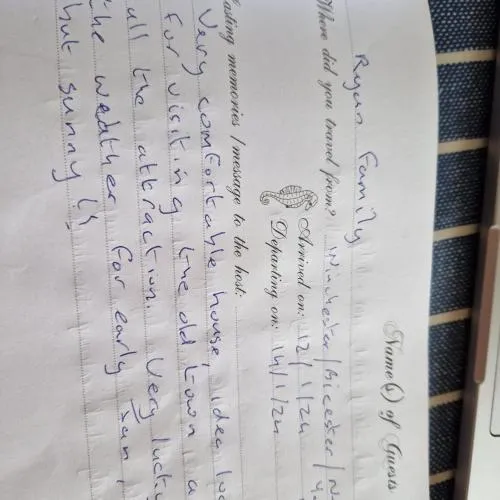 Name(s) of Guests
Ryan Family
Where did you travel from? Winchester/Bicester/
Arrived on: 12/1/24
Departing on: 14/1/24
lasting memories / message to the host:
Very comfortable house,
for visiting the old town
all the attraction. Very lucky
the weather for early Jan,
but sunny